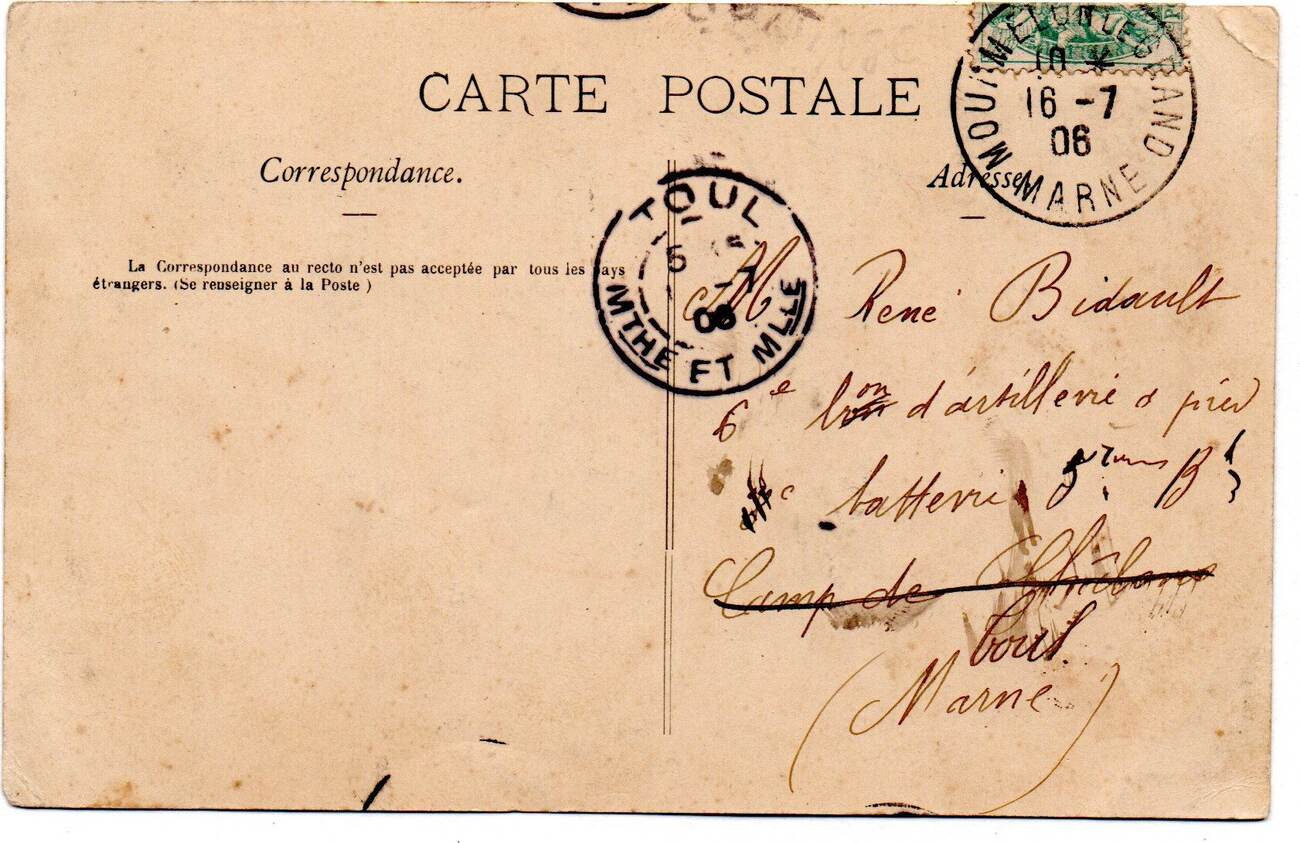 CARTE POSTALE
MOURMELON LE GRAND
10 *
16 -7
06
MARNE
Correspondance.
Adresse
La Correspondance au recto n'est pas acceptée par tous les pays
étrangers. (Se renseigner à la Poste )
TOUL
5
-7
06
MTHE ET MLLE
M René Bidault
6e bon d'artillerie à pied
batterie 5
Camp de Châlons
Toul
(Marne)